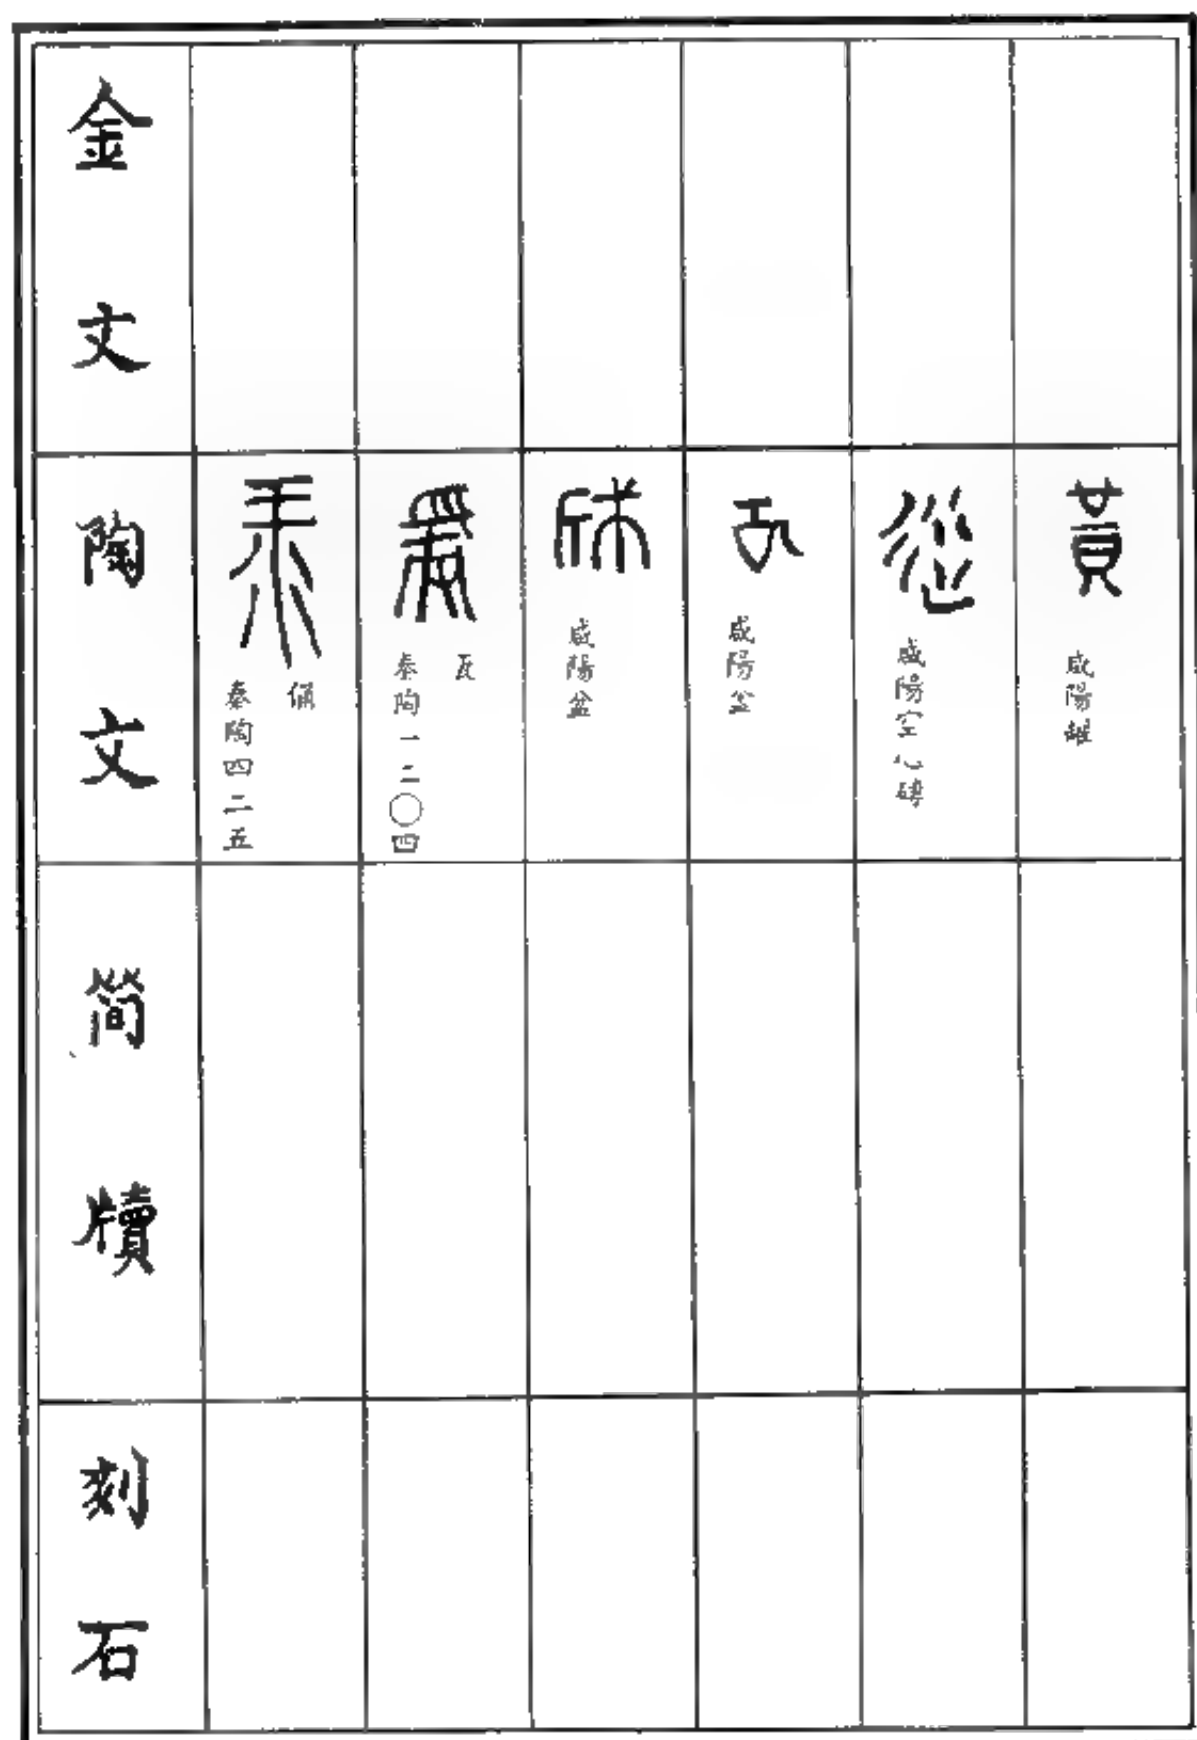 金文
陶文
俑
秦陶四二五
瓦
秦陶一二〇四
咸陽盆
咸陽盆
咸陽空心磚
咸陽罐
简牘
刻石